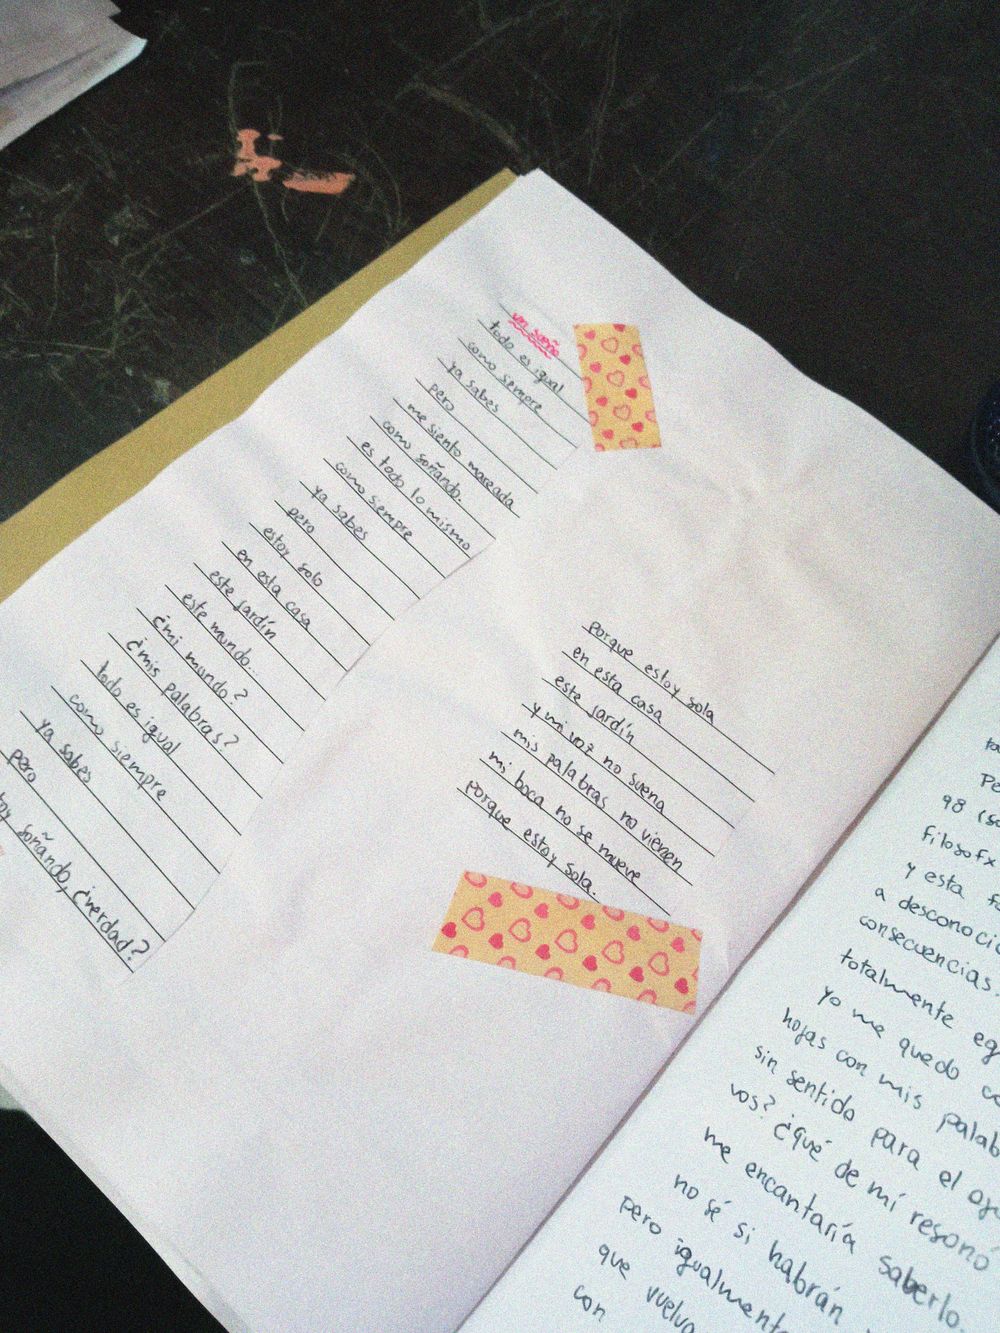 un sueño
todo es igual
como siempre
ya sabes
pero
me siento mareada
como soñando.
es todo lo mismo
como siempre
ya sabes
pero
estoy solo
en esta casa
este jardín
este mundo...
¿mi mundo?
¿mis palabras?
todo es igual
como siempre
ya sabes
pero
soñando, ¿verdad?
porque estoy sola
en esta casa
este jardín
y mi voz no suena
mis palabras no vienen
mi boca no se mueve
porque estoy sola.
98
filosofx
y esta
a desconoci
consecuencias.
totalmente eg
yo me quedo
hojas con mis palab
sin sentido para el
vos? ¿qué de mí resonó
me encantaría saberlo.
no sé si habrán
pero igualment
que vuelva
con